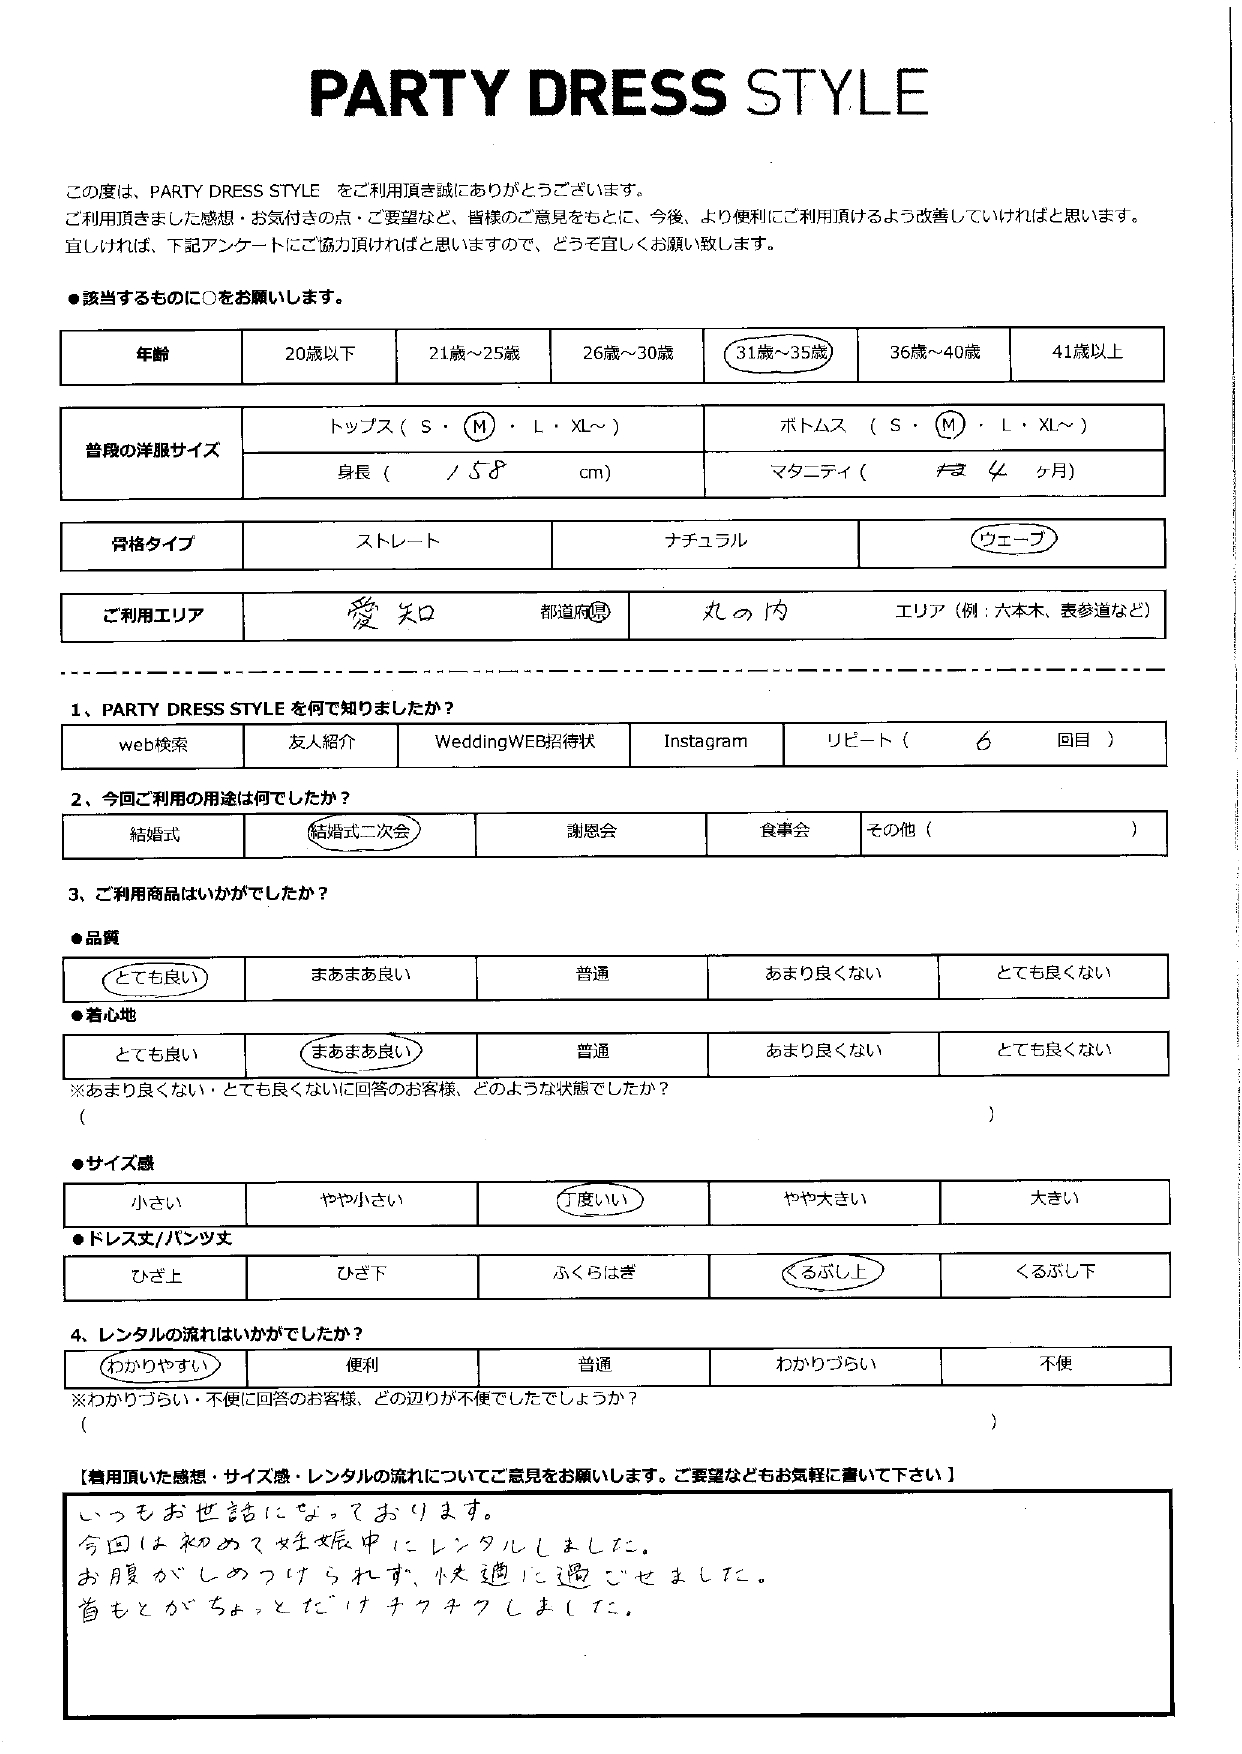 PARTY DRESS STYLE
この度は、PARTY DRESS STYLE　をご利用頂き誠にありがとうございます。
ご利用頂きました感想・お気付きの点・ご要望など、皆様のご意見をもとに、今後、より便利にご利用頂けるよう改善していければと思います。
宜しければ、下記アンケートにご協力頂ければと思いますので、どうぞ宜しくお願い致します。
●該当するものに○をお願いします。
年齢 20歳以下 21歳～25歳 26歳～30歳 31歳～35歳 36歳～40歳 41歳以上
普段の洋服サイズ
トップス ( S ・ M ・ L ・ XL～ ) ボトムス ( S ・ M ・ L ・ XL～ )
身長 ( 158 cm) マタニティ ( 4 ヶ月)
骨格タイプ ストレート ナチュラル ウェーブ
ご利用エリア 愛知 都道府県 丸の内 エリア（例：六本木、表参道など）
1、PARTY DRESS STYLE を何で知りましたか？
web検索 友人紹介 WeddingWEB招待状 Instagram リピート（ 6 回目 ）
2、今回ご利用の用途は何でしたか？
結婚式 結婚式二次会 謝恩会 食事会 その他（ ）
3、ご利用商品はいかがでしたか？
●品質
とても良い まあまあ良い 普通 あまり良くない とても良くない
●着心地
とても良い まあまあ良い 普通 あまり良くない とても良くない
※あまり良くない・とても良くないに回答のお客様、どのような状態でしたか？
（ ）
●サイズ感
小さい やや小さい 丁度いい やや大きい 大きい
●ドレス丈/パンツ丈
ひざ上 ひざ下 ふくらはぎ くるぶし上 くるぶし下
4、レンタルの流れはいかがでしたか？
わかりやすい 便利 普通 わかりづらい 不便
※わかりづらい・不便に回答のお客様、どの辺りが不便でしたでしょうか？
（ ）
【着用頂いた感想・サイズ感・レンタルの流れについてご意見をお願いします。ご要望などもお気軽に書いて下さい 】
いつもお世話になっております。
今回は初めて妊娠中にレンタルしました。
お腹がしめつけられず、快適に過ごせました。
首もとがちょっとだけチクチクしました。